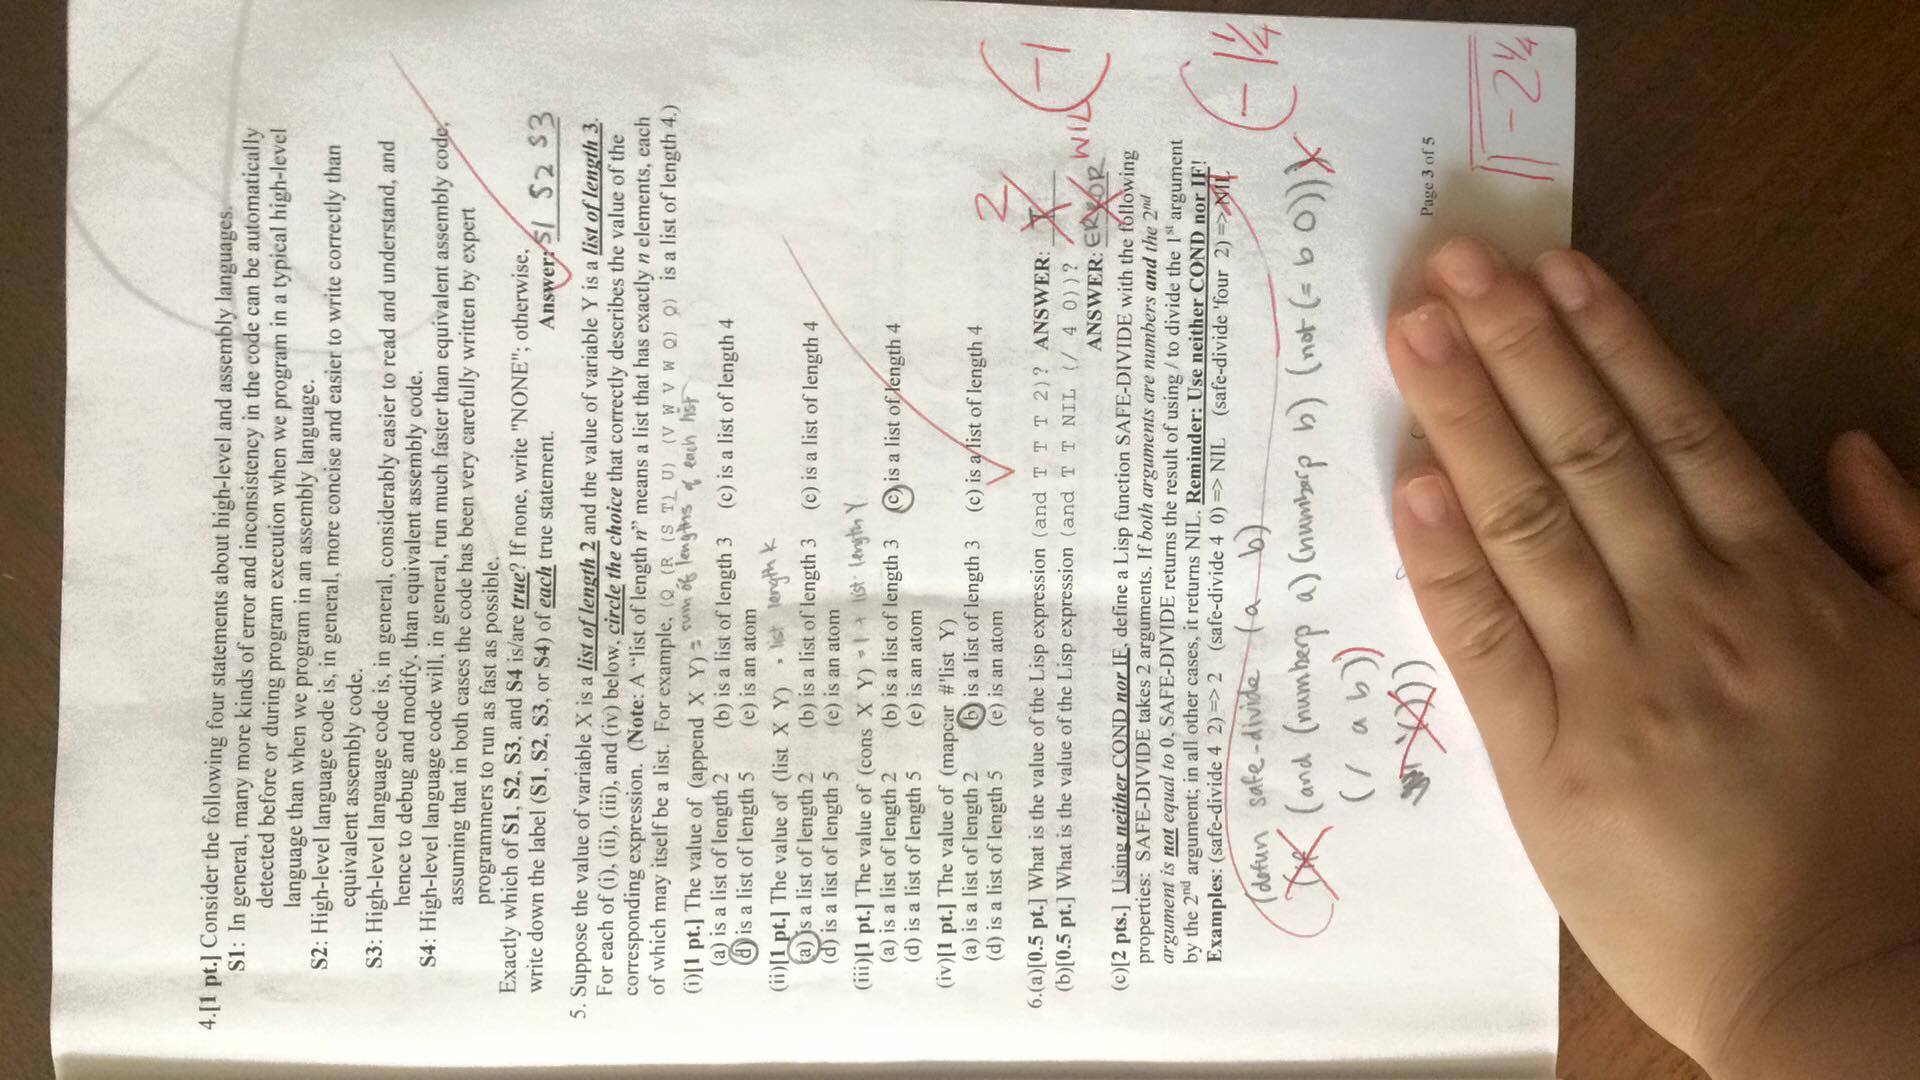 4.[1 pt.] Consider the following four statements about high-level and assembly languages.
S1: In general, many more kinds of error and inconsistency in the code can be automatically
detected before or during program execution when we program in a typical high-level
language than when we program in an assembly language.
S2: High-level language code is, in general, more concise and easier to write correctly than
equivalent assembly code.
S3: High-level language code is, in general, considerably easier to read and understand, and
hence to debug and modify, than equivalent assembly code.
S4: High-level language code will, in general, run much faster than equivalent assembly code,
assuming that in both cases the code has been very carefully written by expert
programmers to run as fast as possible.
Exactly which of S1, S2, S3, and S4 is/are true? If none, write "NONE"; otherwise,
write down the label (S1, S2, S3, or S4) of each true statement. Answer: S1 S2 S3
5. Suppose the value of variable X is a list of length 2 and the value of variable Y is a list of length 3.
For each of (i), (ii), (iii), and (iv) below, circle the choice that correctly describes the value of the
corresponding expression. (Note: A “list of length n” means a list that has exactly n elements, each
of which may itself be a list. For example, (Q (R (S T) U) (V W V W Q) Q) is a list of length 4.)
(i)[1 pt.] The value of (append X Y) = sum of lengths of each list
(a) is a list of length 2 (b) is a list of length 3 (c) is a list of length 4
(d) is a list of length 5 (e) is an atom
(ii)[1 pt.] The value of (list X Y) = list length k
(a) is a list of length 2 (b) is a list of length 3 (c) is a list of length 4
(d) is a list of length 5 (e) is an atom
(iii)[1 pt.] The value of (cons X Y) = 1 + list length Y
(a) is a list of length 2 (b) is a list of length 3 (c) is a list of length 4
(d) is a list of length 5 (e) is an atom
(iv)[1 pt.] The value of (mapcar #'list Y)
(a) is a list of length 2 (b) is a list of length 3 (c) is a list of length 4
(d) is a list of length 5 (e) is an atom
2
6.(a)[0.5 pt.] What is the value of the Lisp expression (and T T T 2)? ANSWER: T -1
(b)[0.5 pt.] What is the value of the Lisp expression (and T T NIL (/ 4 0))?
ANSWER: ERROR NIL
(c)[2 pts.] Using neither COND nor IF, define a Lisp function SAFE-DIVIDE with the following
properties: SAFE-DIVIDE takes 2 arguments. If both arguments are numbers and the 2nd
argument is not equal to 0, SAFE-DIVIDE returns the result of using / to divide the 1st argument
by the 2nd argument; in all other cases, it returns NIL. Reminder: Use neither COND nor IF!
Examples: (safe-divide 4 2) => 2 (safe-divide 4 0) => NIL (safe-divide 'four 2) => NIL
-1 1/4
(defun safe-divide (a b)
(if (and (numberp a) (numberp b) (not (= b 0)))
(/ a b))
'()))
Page 3 of 5
-2 1/4